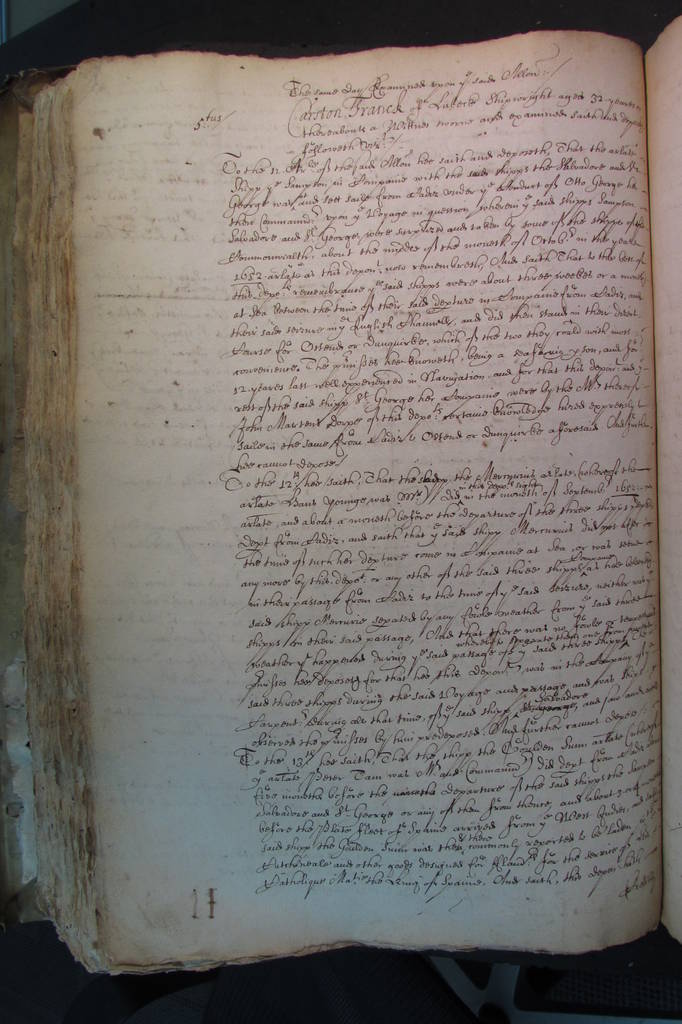 The same day Examined upon ye said Allon:/
5tus/
Carsten Franck of Lubeck Shipwright aged 32 yeares or
thereabouts a Wittnes sworne and examined saith and deposeth
followeth vizt./
To the 11 Arle of the said Allon hee saith and deposeth, That the arlate
shipp ye Sampson in Companie with the said shipps the Salvadore and St
George was and sett saile from Cadiz under ye Conduct of Otto George
their Command[er] upon ye Voyage in question wherein ye said shipps Sampson
Salvadore and St George, were surprized and taken by some of the shipps of this
Commonwealth, about the middle of the moneth of Octobr in the yeare
1652 arlate as this depont now remembreth, And saith That to the best of
this depots remembrance ye said shipps were about three weekes or a moneth
at Sea betweene the time of their said depture in Companie from Cadiz, and
their said seizure in ye English Channell, and did then stand in their direct
Course for Ostend or Dunquirke, which of the two they could with most
convenience. The prmisses hee knoweth, being a seafaring pson, and for
12 yeares last well experienced in Navigation, and for that this depont and ye
rest of the said shipp St George her Companie were by the Mr thereof
John Martens Dorpe of this depots certaine knowledge hired expressely to
saile in the same from Cadiz to Ostend or Dunquirke aforesaid And further
hee cannot depose./
To the 12th hee saith, That the shipp the Mercurius arlate, (whereof the
arlate Hans Younge was Mr) did in this depots sight in the moneth of Septembr 1652
arlate, and about a moneth before the departure of the three shipps
dept from Cadiz, and saith that ye said shipp Mercurius did not after
the time of such her depture come in Companie at Sea or was seene
any more by this depot. or any other of the said three shipps Companie as hee beleeveth
in their passage from Cadiz to the time of ye said seizure, neither was ye
said shipp Mercurie sepated by any foule weather from ye said three
shipps in their said passage, And that there was no foule or tempestuous
weather yt happened during ye said passage of ye said three shipps whereby to seperate them one from another
prmisses hee deposeth for that hee this depont was in the Company of ye
said three shipps during the said Voyage and passage, and was Shipp
Carpentr during all that time, of ye said shipp Salvadore, and saw and well
observed the prmisses by him predeposed. And further cannot depose./
To the 13th hee saith, That the shipp the Goulden Sunn arlate (whereof
ye arlate Peter Tam was Mr and Command[er]) did dept from Cadiz about
five moneths before the departure of the said shipps the Sampson
Salvadore and St George or any of them from thence, and about
before the Plate Fleet of Spaine arrived from ye West Indies, and
said shipp the Goulden Sunn was then there commonly reported to be laden wth
Cutchineale and other goods designed for Flandrs for the service of his
Catholique Matie the King of Spaine. And saith, this depont hath
11